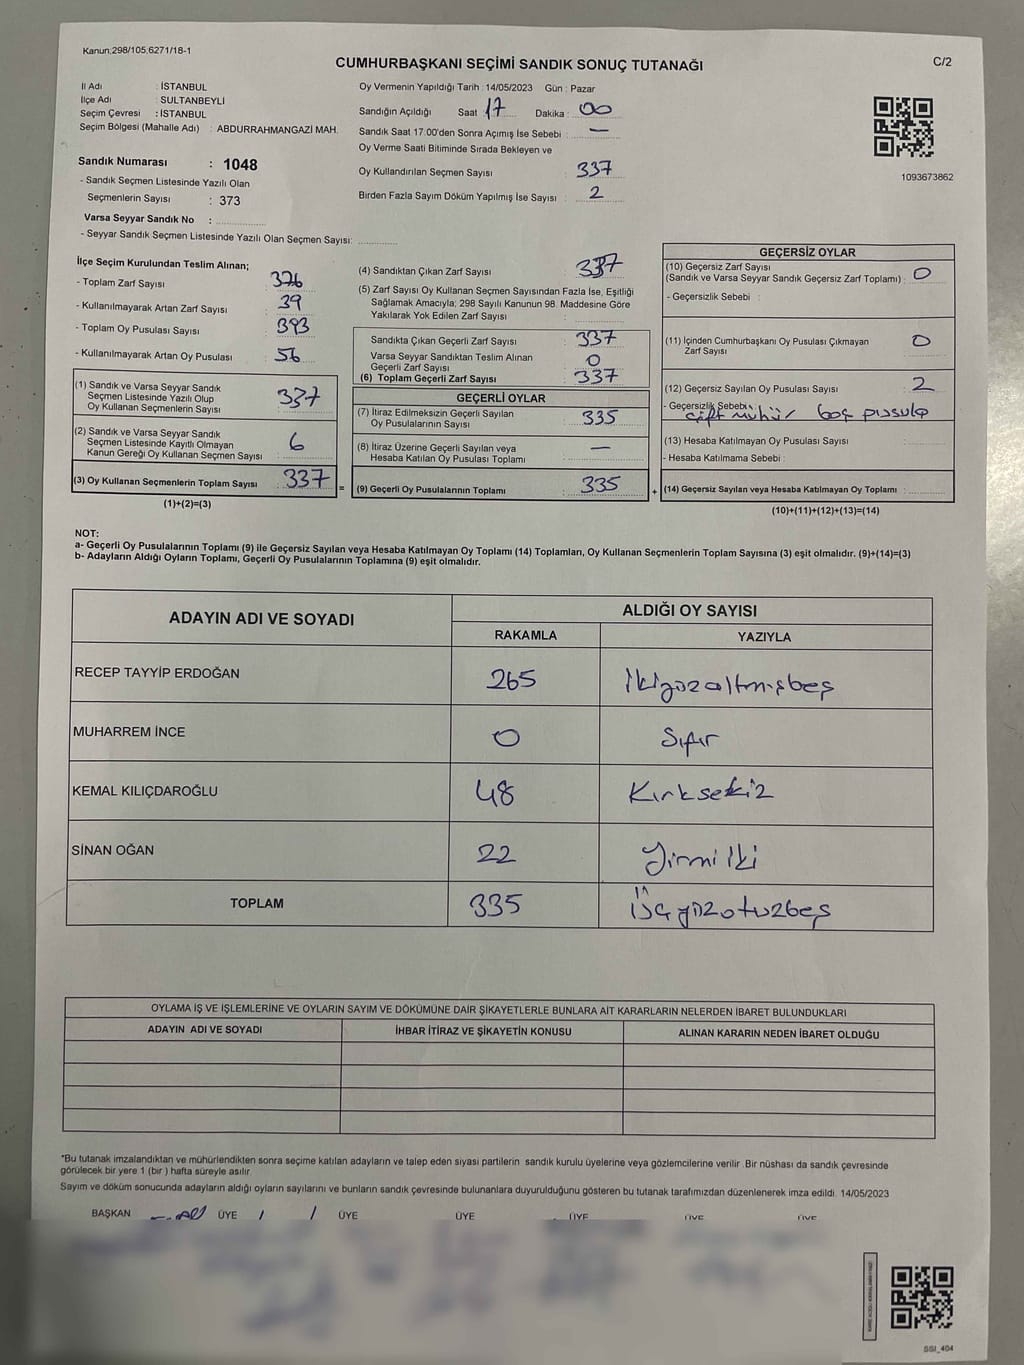 Kanun:298/105,6271/18-1
CUMHURBAŞKANI SEÇİMİ SANDIK SONUÇ TUTANAĞI
C/2
İl Adı : İSTANBUL
İlçe Adı : SULTANBEYLİ
Seçim Çevresi : İSTANBUL
Seçim Bölgesi (Mahalle Adı) : ABDURRAHMANGAZİ MAH.
Sandık Numarası : 1048
- Sandık Seçmen Listesinde Yazılı Olan
Seçmenlerin Sayısı : 373
Varsa Seyyar Sandık No :
- Seyyar Sandık Seçmen Listesinde Yazılı Olan Seçmen Sayısı:
Oy Vermenin Yapıldığı Tarih : 14/05/2023 Gün : Pazar
Sandığın Açıldığı Saat 17 Dakika : 00
Sandık Saat 17:00'den Sonra Açımış İse Sebebi : —
Oy Verme Saati Bitiminde Sırada Bekleyen ve
Oy Kullandırılan Seçmen Sayısı : 337
Birden Fazla Sayım Döküm Yapılmış İse Sayısı : 2
1093673862
İlçe Seçim Kurulundan Teslim Alınan;
- Toplam Zarf Sayısı : 376
- Kullanılmayarak Artan Zarf Sayısı : 39
- Toplam Oy Pusulası Sayısı : 393
- Kullanılmayarak Artan Oy Pusulası : 56
(1) Sandık ve Varsa Seyyar Sandık
Seçmen Listesinde Yazılı Olup
Oy Kullanan Seçmenlerin Sayısı : 337
(2) Sandık ve Varsa Seyyar Sandık
Seçmen Listesinde Kayıtlı Olmayan
Kanun Gereği Oy Kullanan Seçmen Sayısı : 6
(3) Oy Kullanan Seçmenlerin Toplam Sayısı : 337 =
(1)+(2)=(3)
(4) Sandıktan Çıkan Zarf Sayısı : 337
(5) Zarf Sayısı Oy Kullanan Seçmen Sayısından Fazla İse, Eşitliği
Sağlamak Amacıyla; 298 Sayılı Kanunun 98. Maddesine Göre
Yakılarak Yok Edilen Zarf Sayısı :
Sandıkta Çıkan Geçerli Zarf Sayısı : 337
Varsa Seyyar Sandıktan Teslim Alınan
Geçerli Zarf Sayısı : 0
(6) Toplam Geçerli Zarf Sayısı : 337
GEÇERLİ OYLAR
(7) İtiraz Edilmeksizin Geçerli Sayılan
Oy Pusulalarının Sayısı : 335
(8) İtiraz Üzerine Geçerli Sayılan veya
Hesaba Katılan Oy Pusulası Toplamı : —
(9) Geçerli Oy Pusulalarının Toplamı : 335 +
GEÇERSİZ OYLAR
(10) Geçersiz Zarf Sayısı
(Sandık ve Varsa Seyyar Sandık Geçersiz Zarf Toplamı) : 0
- Geçersizlik Sebebi :
(11) İçinden Cumhurbaşkanı Oy Pusulası Çıkmayan
Zarf Sayısı : 0
(12) Geçersiz Sayılan Oy Pusulası Sayısı : 2
- Geçersizlik Sebebi : çift mühür boş pusula
(13) Hesaba Katılmayan Oy Pusulası Sayısı :
- Hesaba Katılmama Sebebi :
(14) Geçersiz Sayılan veya Hesaba Katılmayan Oy Toplamı :
(10)+(11)+(12)+(13)=(14)
NOT:
a- Geçerli Oy Pusulalarının Toplamı (9) ile Geçersiz Sayılan veya Hesaba Katılmayan Oy Toplamı (14) Toplamları, Oy Kullanan Seçmenlerin Toplam Sayısına (3) eşit olmalıdır. (9)+(14)=(3)
b- Adayların Aldığı Oyların Toplamı, Geçerli Oy Pusulalarının Toplamına (9) eşit olmalıdır.
ADAYIN ADI VE SOYADI
ALDIĞI OY SAYISI
RAKAMLA YAZIYLA
RECEP TAYYİP ERDOĞAN 265 İkiyüzaltmışbeş
MUHARREM İNCE 0 Sıfır
KEMAL KILIÇDAROĞLU 48 Kırksekiz
SİNAN OĞAN 22 Yirmi İki
TOPLAM 335 Üçyüzotuzbeş
OYLAMA İŞ VE İŞLEMLERİNE VE OYLARIN SAYIM VE DÖKÜMÜNE DAİR ŞİKAYETLERLE BUNLARA AİT KARARLARIN NELERDEN İBARET BULUNDUKLARI
ADAYIN ADI VE SOYADI İHBAR İTİRAZ VE ŞİKAYETİN KONUSU ALINAN KARARIN NEDEN İBARET OLDUĞU
*Bu tutanak imzalandıktan ve mühürlendikten sonra seçime katılan adayların ve talep eden siyasi partilerin sandık kurulu üyelerine veya gözlemcilerine verilir. Bir nüshası da sandık çevresinde
görülecek bir yere 1 (bir) hafta süreyle asılır.
Sayım ve döküm sonucunda adayların aldığı oyların sayılarını ve bunların sandık çevresinde bulunanlara duyurulduğunu gösteren bu tutanak tarafımızdan düzenlenerek imza edildi. 14/05/2023
BAŞKAN ÜYE ÜYE ÜYE ÜYE ÜYE ÜYE
SSI_404